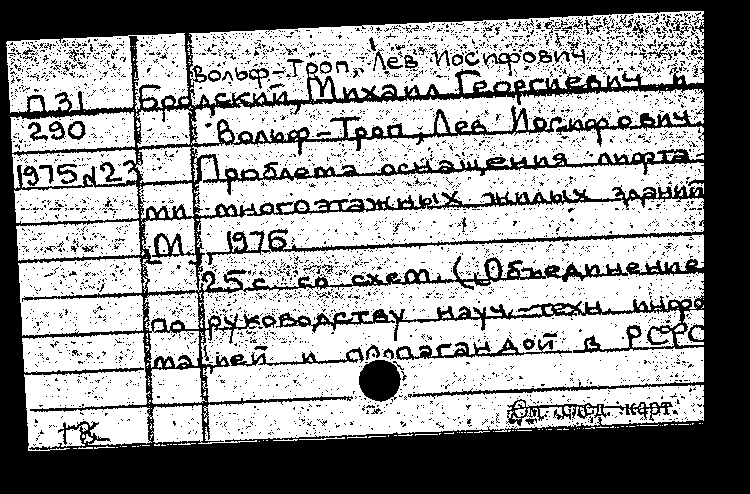 Вольф-Троп, Лев Иосифович
П 31 Бродский, Михаил Георгиевич и
290 Вольф-Троп, Лев Иосифович
1975 N 23 Проблема оснащения лифта-
ми многоэтажных жилых зданий
М., 1975.
25 с. со схем. („Объединение
по руководству науч.-техн. инфор
мацией и пропагандой в РСФС
См. след. карт.